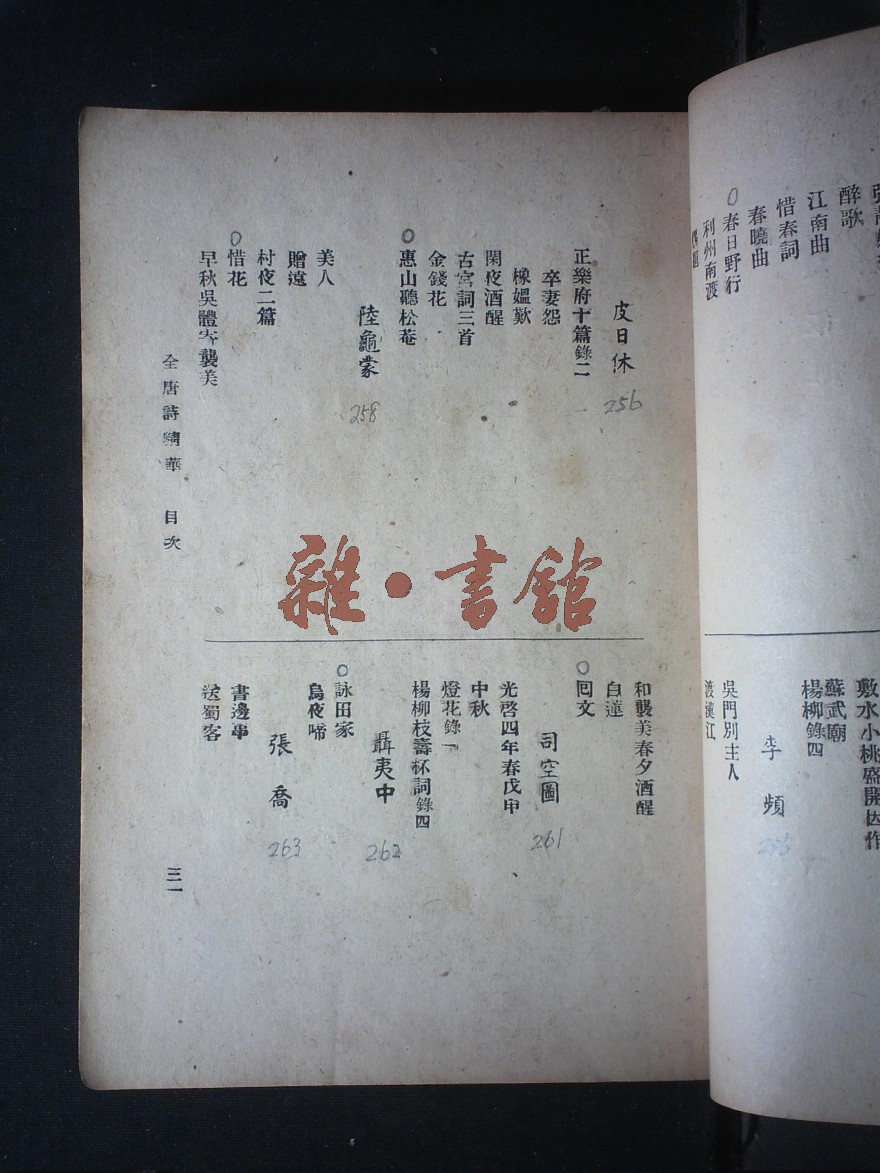 醉歌
江南曲
惜春詞
春曉曲
○春日野行
利州南渡
敷水小桃盛開因作
蘇武廟
楊柳錄四
李頻
吳門別主人
渡漢江
皮日休
256
正樂府十篇錄二
卒妻怨
橡媼歎
閑夜酒醒
古宮詞三首
金錢花
○惠山聽松菴
陸龜蒙
258
美人
贈遠
村夜二篇
○惜花
早秋吳體寄襲美
和襲美春夕酒醒
白蓮
○回文
司空圖
261
光啓四年春戊申
中秋
燈花錄一
楊柳枝壽杯詞錄四
聶夷中
262
○詠田家
烏夜啼
張喬
263
書邊事
送蜀客
全唐詩精華 目次
三一
雜·書館